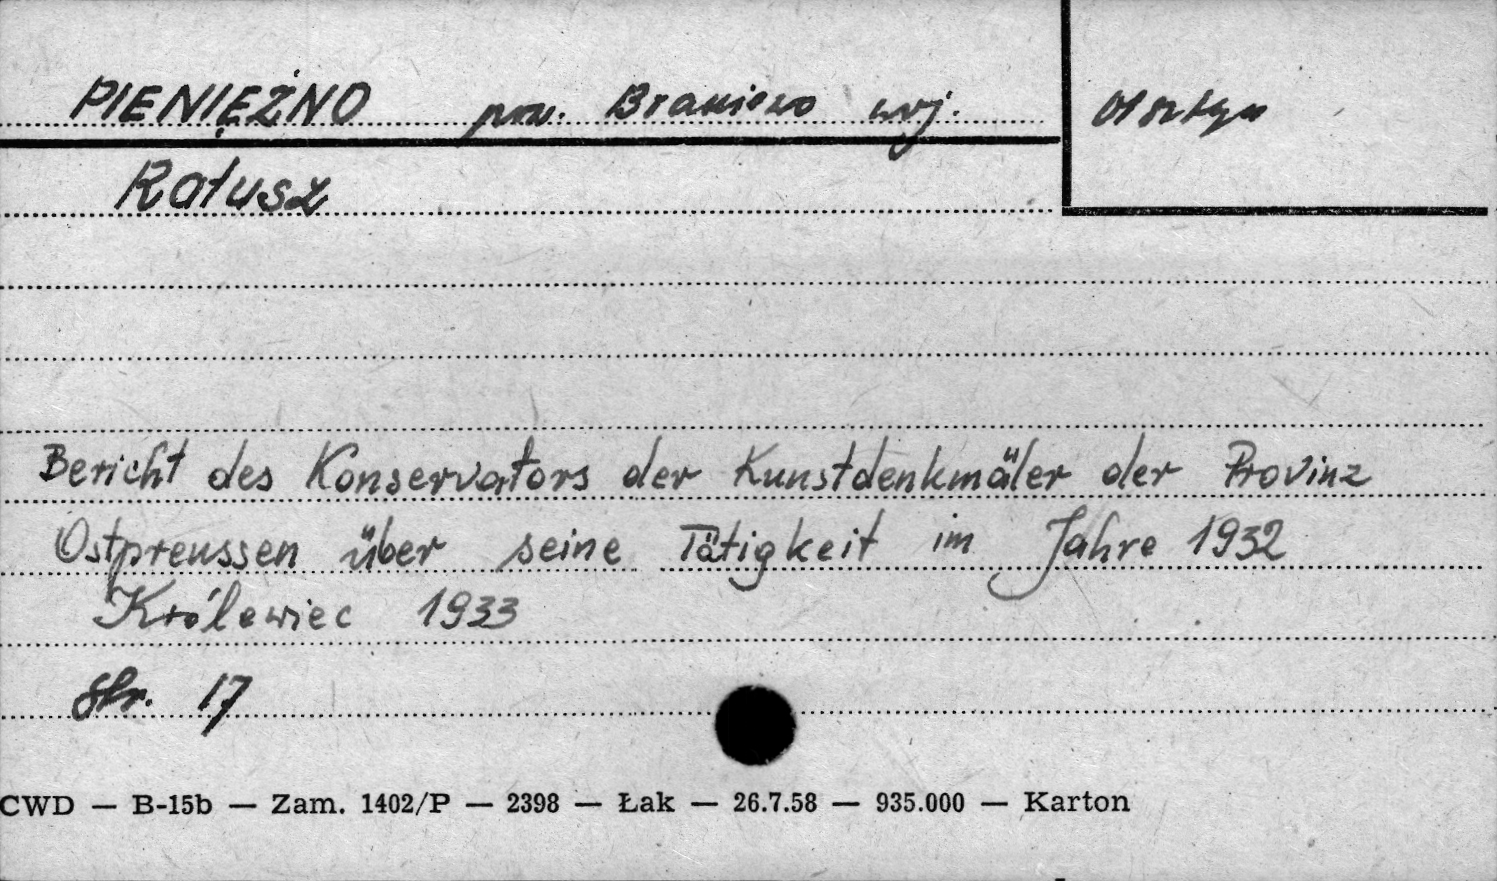 PIENIĘŻNO pow. Braniewo woj. Olsztyn
Ratusz
Bericht des Konservators der Kunstdenkmäler der Provinz
Ostpreussen über seine Tätigkeit im Jahre 1932
Królewiec 1933
Str. 17
CWD — B-15b — Zam. 1402/P — 2398 — Łak — 26.7.58 — 935.000 — Karton